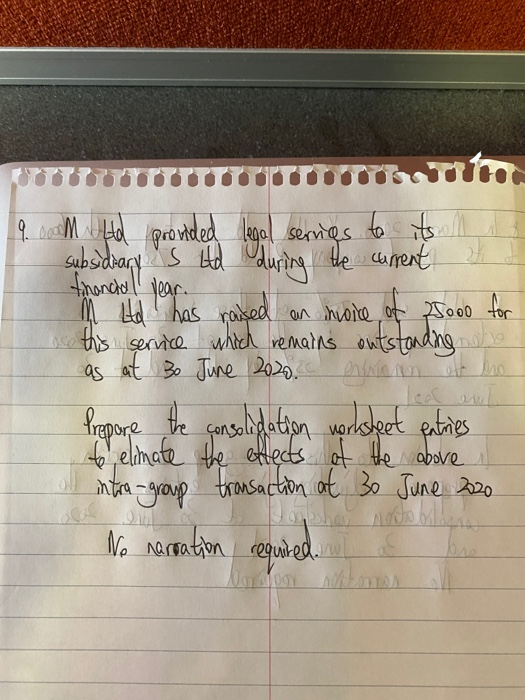 9. M Ltd provided legal services to its
subsidiary S Ltd during the current
financial year.
M Ltd has raised an invoice of 25000 for
this service which remains outstanding
as at 30 June 2020.
Prepare the consolidation worksheet entries
to elimate the effects of the above
intra-group transaction at 30 June 2020
No narration required.